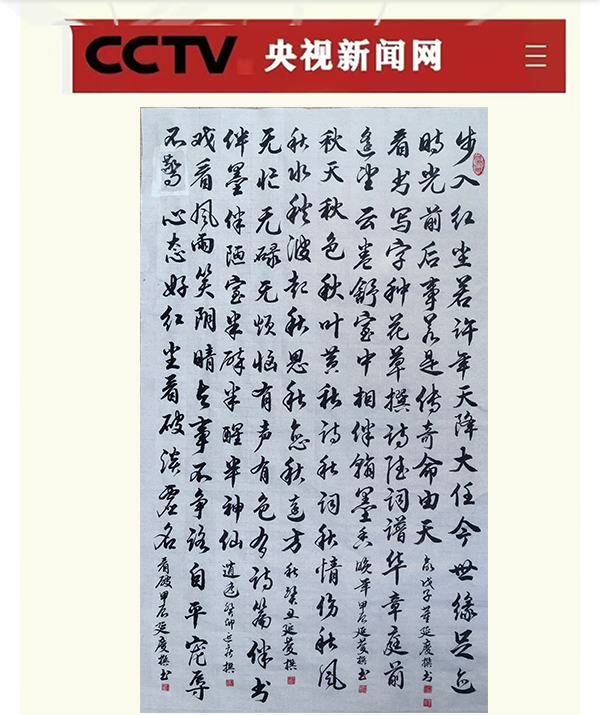 CCTV 央视新闻网
步入红尘若许年天降大任今世缘足迹
时光前后事若是传奇命由天 戊子 延庆撰书
看书写字种花草撰诗词谱华章庭前
遥望云卷舒室中相伴翰墨香 晚年甲辰延庆撰书
秋天秋色秋叶黄秋诗秋词秋情伤秋风
秋水秋波起秋思秋秋远方 秋癸丑延庆撰
无忙无碌无烦恼有声有色有诗篇伴书
伴墨伴陋室半醉半醒半神仙 逍遥癸卯延庆撰
戏看风雨笑阴晴与事不争路自平宠辱
不惊心态好红尘看破淡虚名 看破甲辰延庆撰书